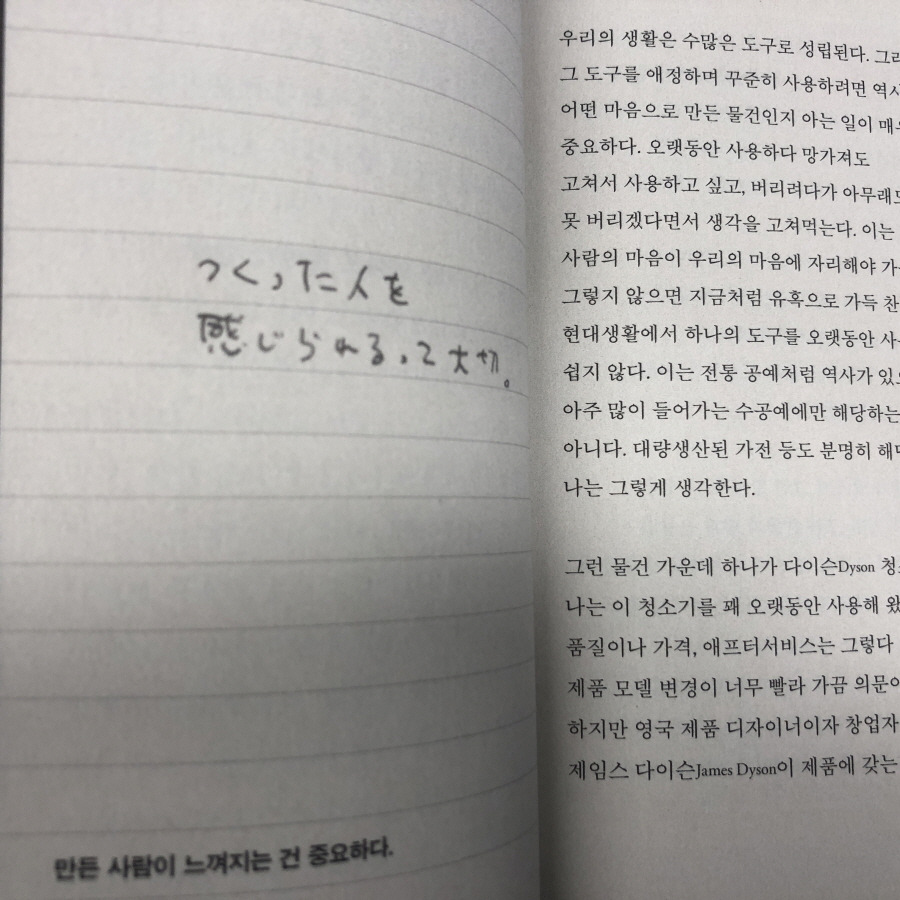 つくった人を
感じられるって大切。
만든 사람이 느껴지는 건 중요하다.
우리의 생활은 수많은 도구로 성립된다.
그 도구를 애정하며 꾸준히 사용하려면
어떤 마음으로 만든 물건인지 아는 일이
중요하다. 오랫동안 사용하다 망가져도
고쳐서 사용하고 싶고, 버리려다가
못 버리겠다면서 생각을 고쳐먹는다. 이는
사람의 마음이 우리의 마음에 자리해야
그렇지 않으면 지금처럼 유혹으로 가득 찬
현대생활에서 하나의 도구를 오랫동안
쉽지 않다. 이는 전통 공예처럼 역사가
아주 많이 들어가는 수공예에만 해당하는
아니다. 대량생산된 가전 등도 분명히
나는 그렇게 생각한다.
그런 물건 가운데 하나가 다이슨Dyson
나는 이 청소기를 꽤 오랫동안 사용해
품질이나 가격, 애프터서비스는 그렇다
제품 모델 변경이 너무 빨라 가끔
하지만 영국 제품 디자이너이자 창업자
제임스 다이슨James Dyson이 제품에 갖는